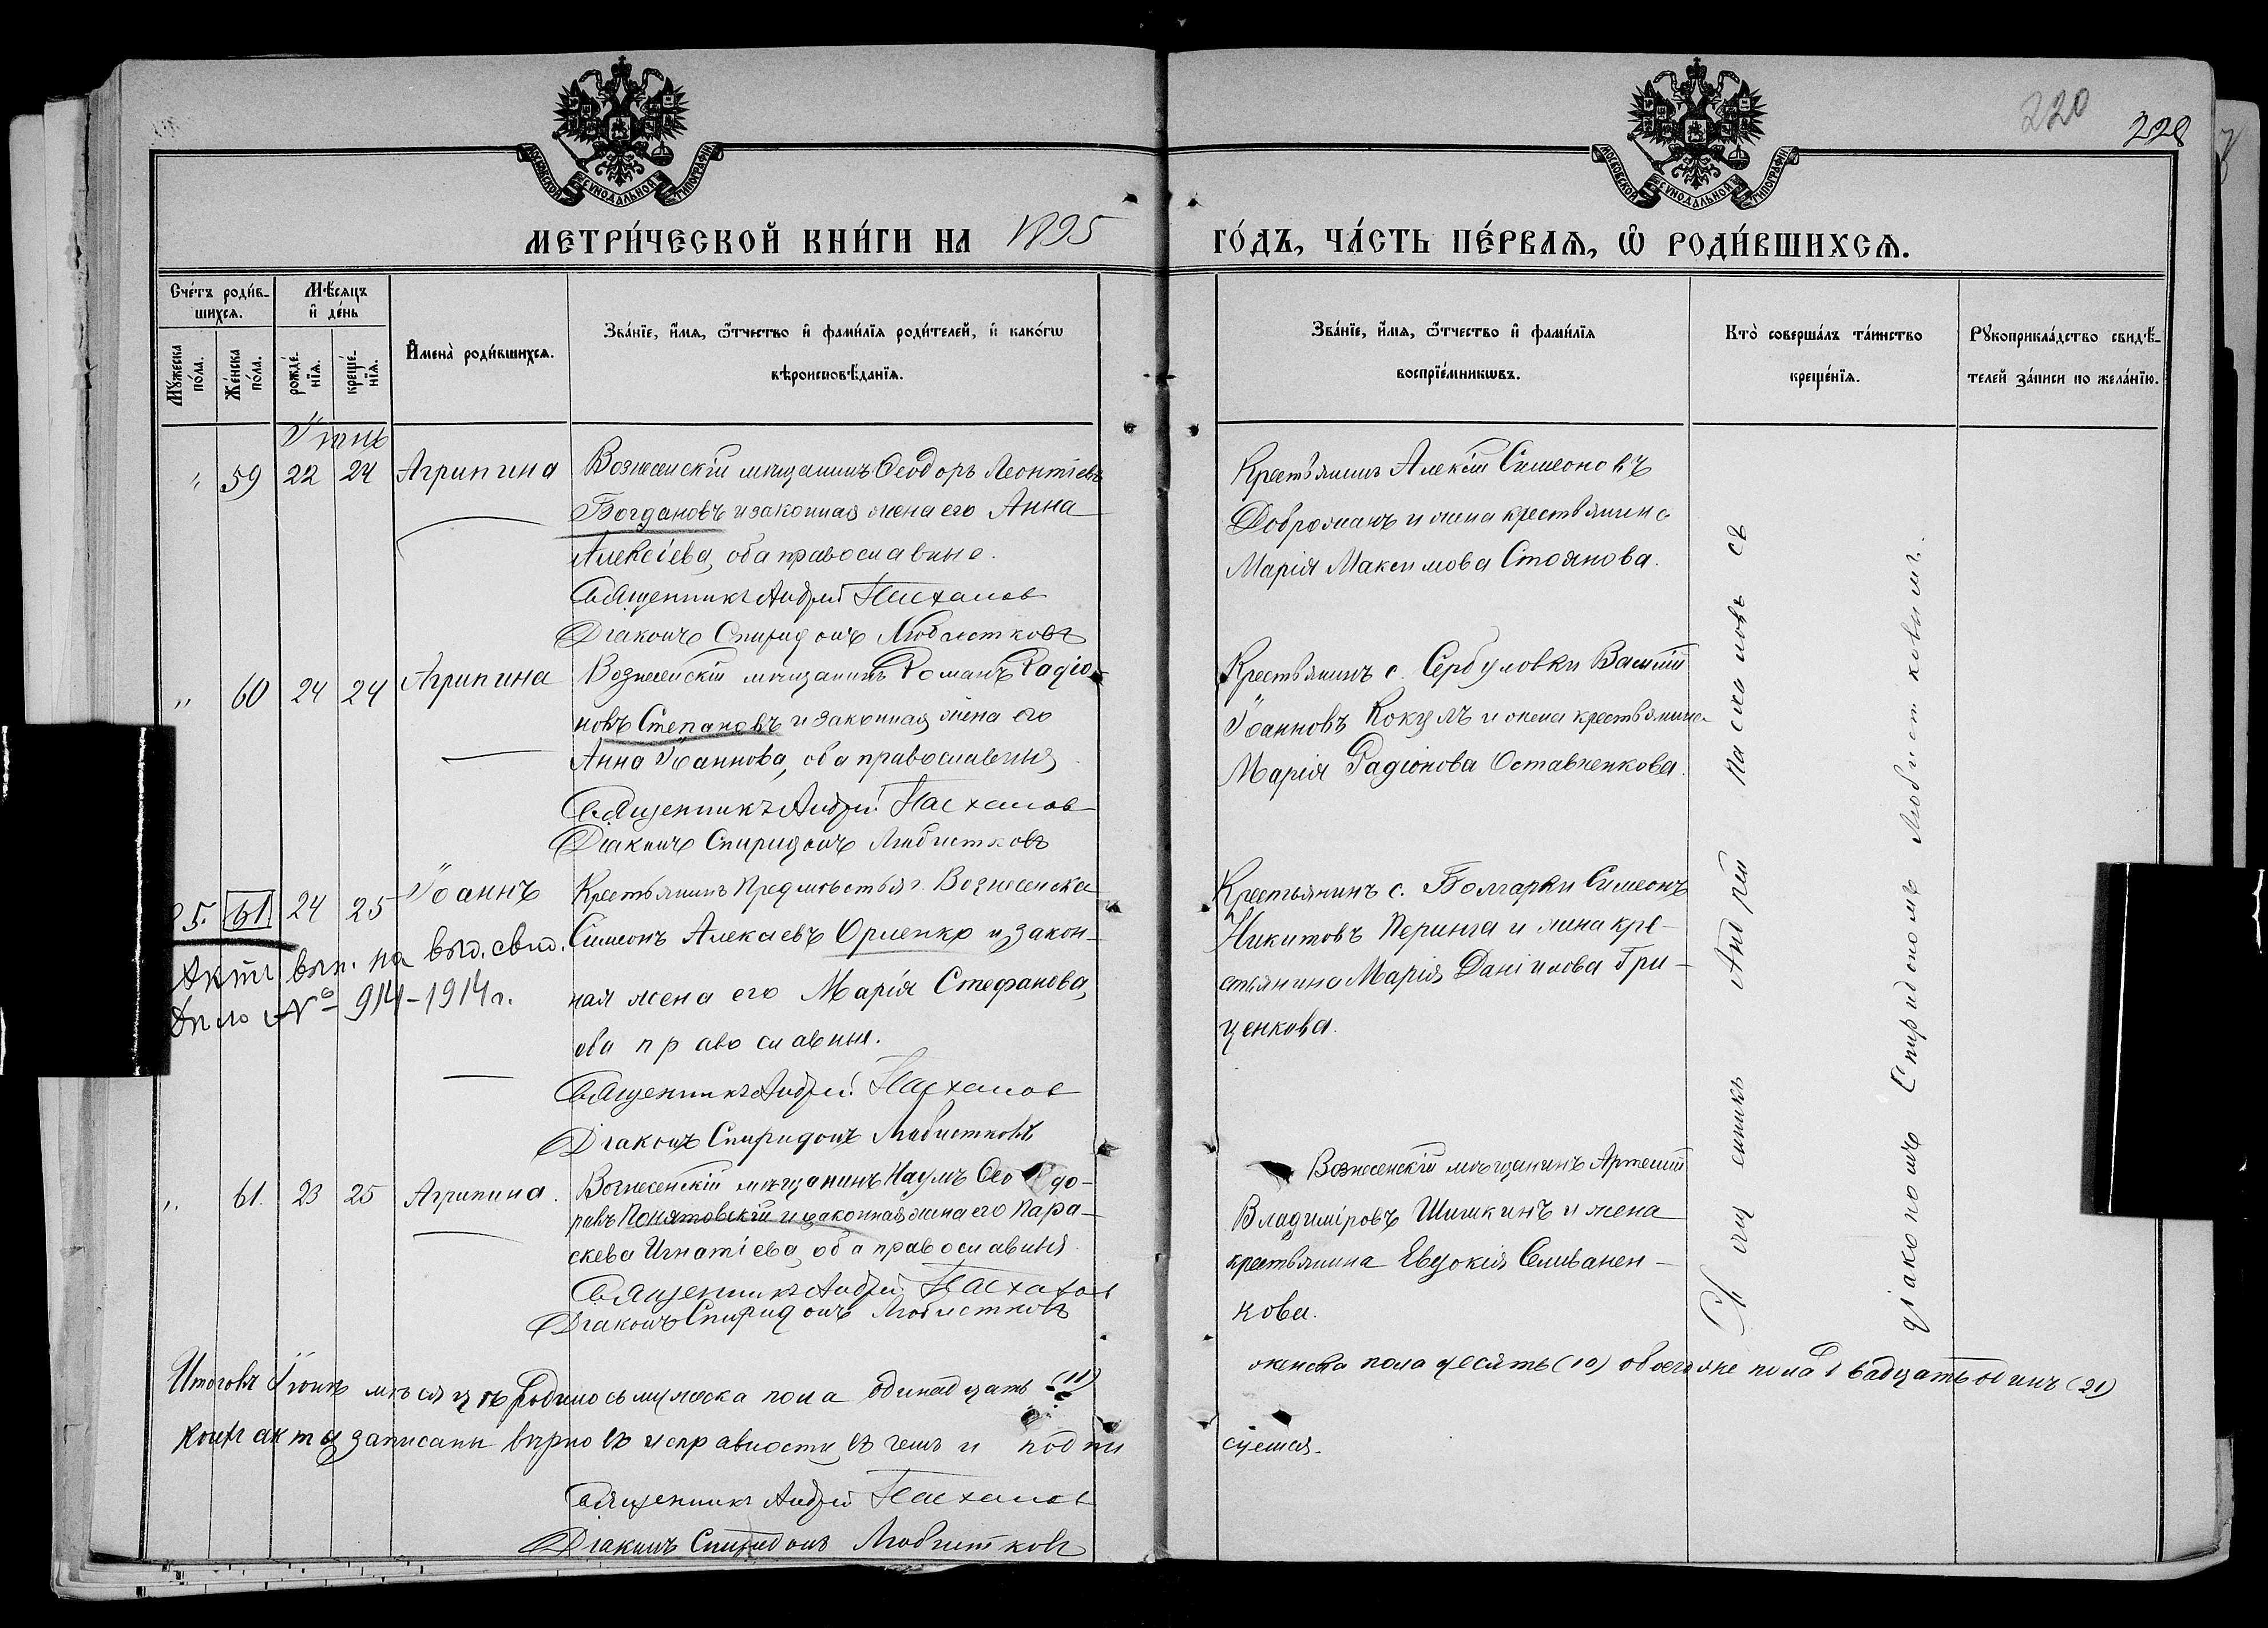 220
228
МОСКОВСКОЙ СѴНОДАЛЬНОЙ ТИПОГРАФІИ
МОСКОВСКОЙ СѴНОДАЛЬНОЙ ТИПОГРАФІИ
МЕТРИ́ЧЕСКОЙ КНИ́ГИ НА 1895 ГО́ДЪ, ЧА́СТЬ ПЕ́РВАЯ, Ѽ РОДИ́ВШИХСЯ.
Сче́тъ роди́в-
шихся.
Мѣ́сяцъ
и҆ де́нь
Мꙋ́жеска
по́ла.
Же́нска
по́ла.
рожде́-
нїя.
креще́-
нїя.
И҆мена̀ роди́вшихся.
Зва́нїе, и҆́мя, ѻ҆́тчество и҆ фами́лїя роди́телей, и҆ како́гѡ
вѣроисповѣ́данїя.
Зва́нїе, и҆́мя, ѻ҆́тчество и҆ фами́лїя
воспрїе́мникѡвъ.
Кто̀ соверша́лъ та́инство
креще́нїя.
Рꙋкоприкла́дство свидѣ́-
телей за́писи по жела́нїю.
Іюнь
" 59 22 24 Агрипина Вознесенскій мѣщанинъ Ѳеодоръ Леонтіевъ
Богдановъ и законная жена его Анна
Алексіева, оба православные.
Священникъ Андрей Пасхалов
Діаконъ Спиридонъ Любистковъ
Крестьянинъ Алексій Симеоновъ
Доброжанъ и жена крестьянина
Марія Максимова Стоянова.
" 60 24 24 Агрипина Вознесенскій мѣщанинъ Романъ Радіо-
новъ Степановъ и законная жена его
Анна Іоаннова, оба православныя
Священникъ Андрей Пасхалов
Діаконъ Спиридонъ Любистковъ
Крестьянинъ с. Сербуловки Василій
Іоанновъ Кокулъ и жена крестьянина
Марія Радіонова Оставненкова.
5. 61. 24 25 Іоаннъ Крестьянинъ Предмѣстья г. Вознесенска
Симеонъ Алексіевъ Орленко и закон-
ная жена его Марія Стефанова,
оба православныя.
Священникъ Андрей Пасхалов
Діаконъ Спиридонъ Любистковъ
Актъ вып. на выд. свид.
Дѣло № 914-1914 г.
Крестьянинъ с. Болгарки Симеонъ
Никитовъ Перинга и жина кре-
стьянина Марія Даніилова Гри-
ценкова.
" 61. 23 25 Агрипина. Вознесенскій мѣщанинъ Наумъ Ѳеодо-
ровъ Понятовскій и законная жена его Пара-
скева Игнатіева, оба православныя
Священникъ Андрей Пасхалов
Діаконъ Спиридонъ Любистковъ
Вознесенскій мѣщанинъ Артемій
Владиміровъ Шишкинъ и жена
крестьянина Евдокія Селиванен-
кова.
Священникъ Андрей Пасхаловъ съ
діакономъ Спиридономъ Любистковымъ.
Итого въ Іюнѣ мѣсяцѣ родилось мужеска пола одинадцать (11) женска пола десять (10) обоего же пола двадцать одинъ (21)
акты записаны вѣрно въ исправности въ чемъ и подпи
суемся.
Священникъ Андрей Пасхалов
Діаконъ Спиридонъ Любистковъ